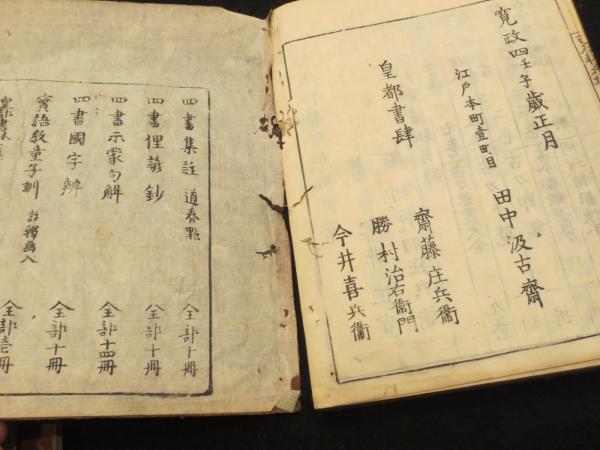 寛政四壬子歳正月
江戸本町壹町目 田中汲古齋
皇都書肆
齋藤庄兵衞
勝村治右衞門
今井喜兵衞
四書集註 道春點 全部十冊
四書俚諺鈔 全部十冊
四書示蒙句解 全部十四冊
四書國字辨 全部十冊
實語教童子訓 註釋畵入 全部壱冊